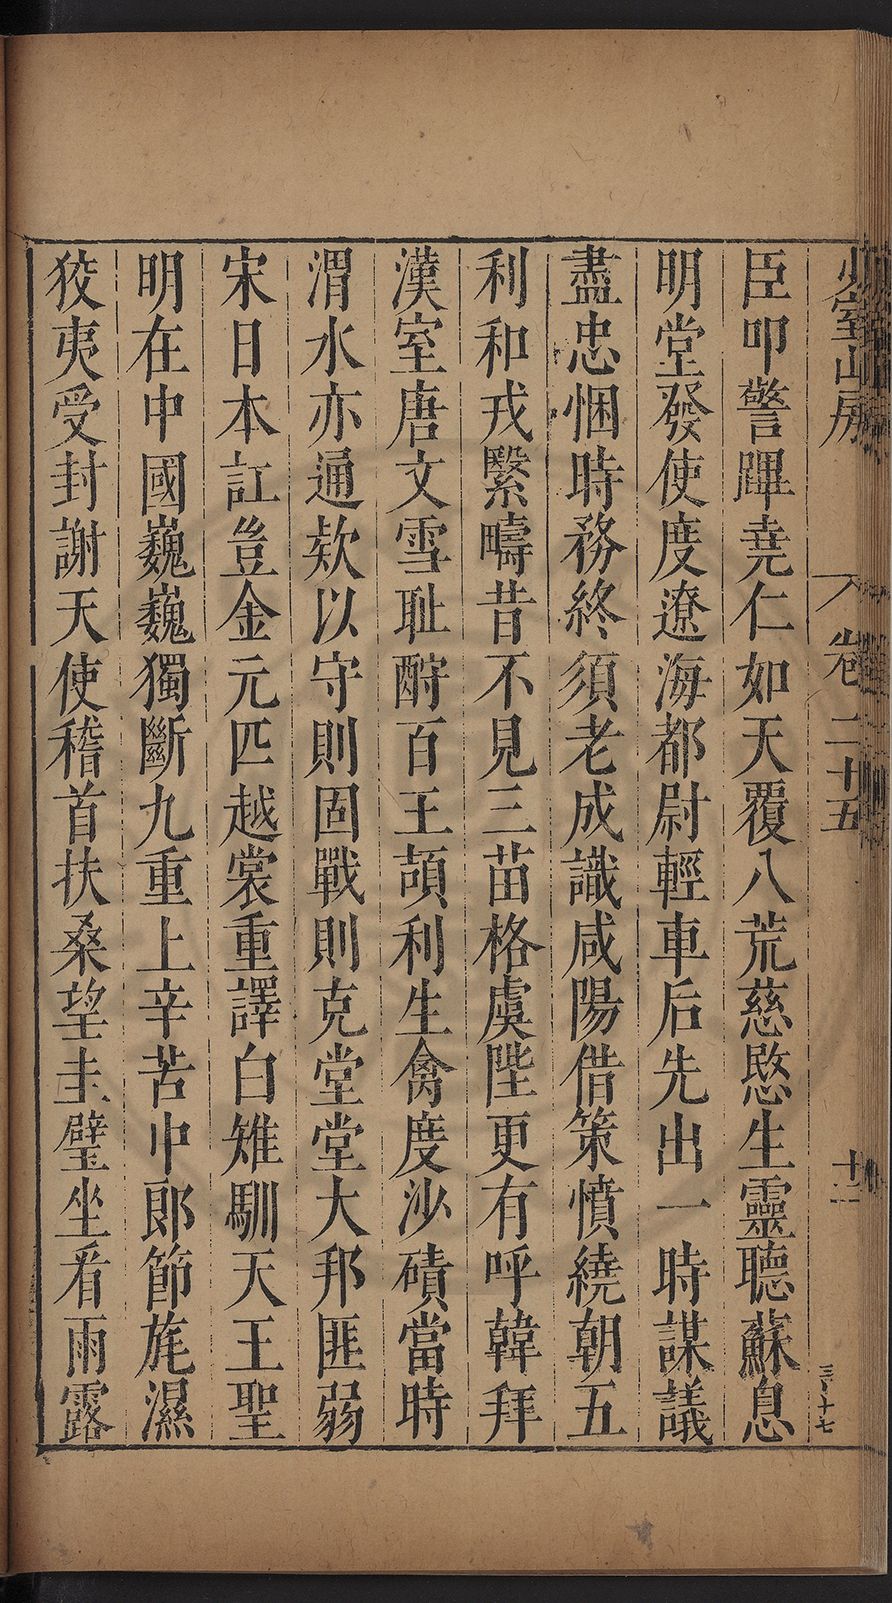 少室山房
卷二十五
十二
三千十七
臣叩警蹕堯仁如天覆八荒慈愍生靈聽蘇息
明堂發使度遼海都尉輕車后先出一時謀議
盡忠悃時務終須老成識咸陽借策憤繞朝五
利和戎繄疇昔不見三苗格虞陛更有呼韓拜
漢室唐文雪耻酹百王頡利生禽度沙磧當時
渭水亦通欵以守則固戰則克堂堂大邦匪弱
宋日本訌豈金元匹越裳重譯白雉馴天王聖
明在中國巍巍獨斷九重上辛苦中郎節旄濕
狡夷受封謝天使稽首扶桑望圭璧坐看雨露